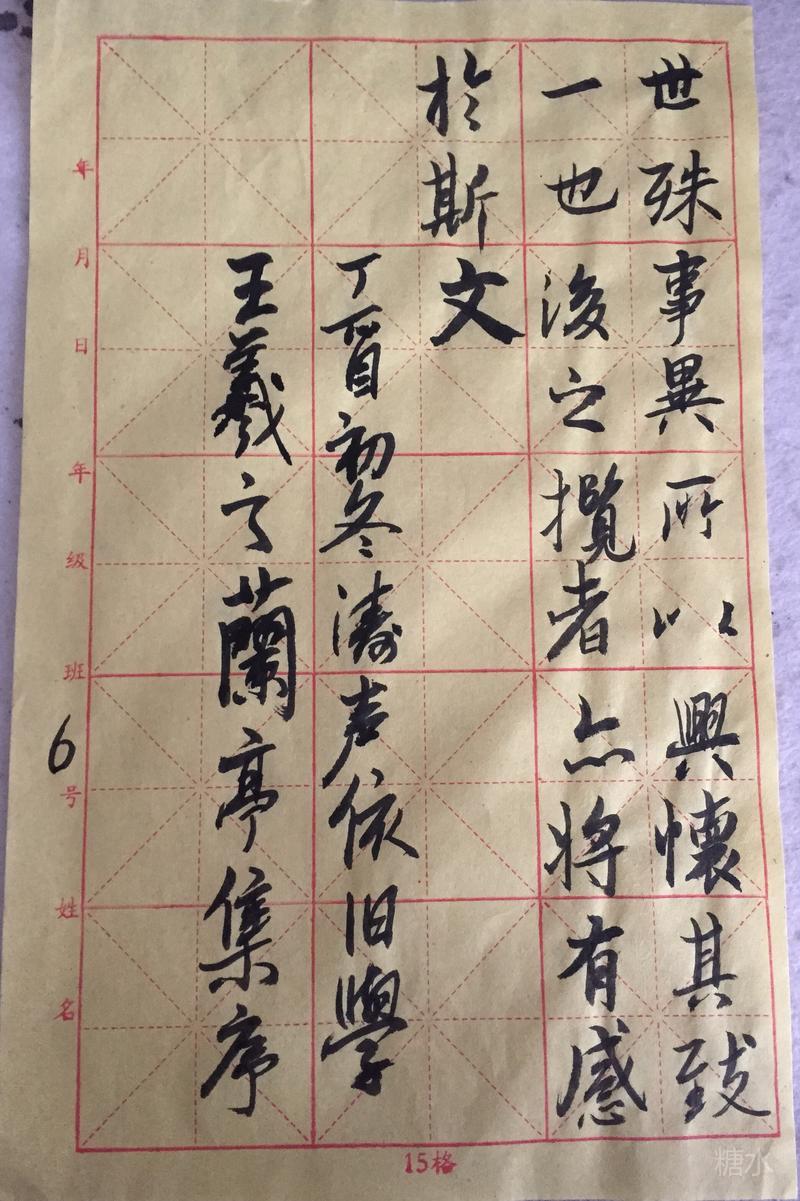 世殊事異所以興懷其致
一也後之攬者亦将有感
於斯文
丁酉初冬涛声依旧學
王羲之蘭亭集序
年月日年级班6号姓名
15格
糖水